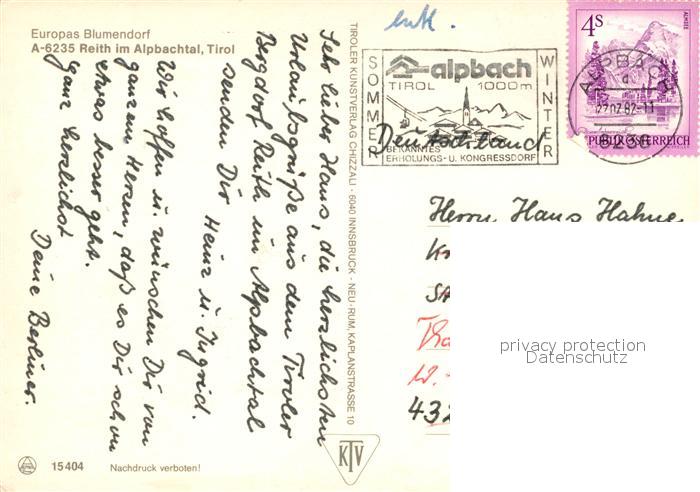 Europas Blumendorf
A-6235 Reith im Alpbachtal, Tirol
Sehr lieber Hans, die herzlichsten
Urlaubsgrüße aus dem Tiroler
Bergdorf Reith im Alpbachtal
senden Dir Heinz u. Ingrid.
Wir hoffen u. wünschen Dir von
ganzem Herzen, daß es Dir schon
etwas besser geht.
Ganz herzlichst
Deine Berliner.
15404 Nachdruck verboten!
TIROLER KUNSTVERLAG CHIZZALI · 6040 INNSBRUCK - NEU-RUM, KAPLANSTRASSE 10
KTV
SOMMER
alpbach
TIROL 1000m
BEKANNTES
ERHOLUNGS- U. KONGRESSDORF
WINTER
4S
ALMSEE
REPUBLIK ÖSTERREICH
ALPBACH
6236
Deutschland
Herrn Hans Hahne
432
privacy protection
Datenschutz